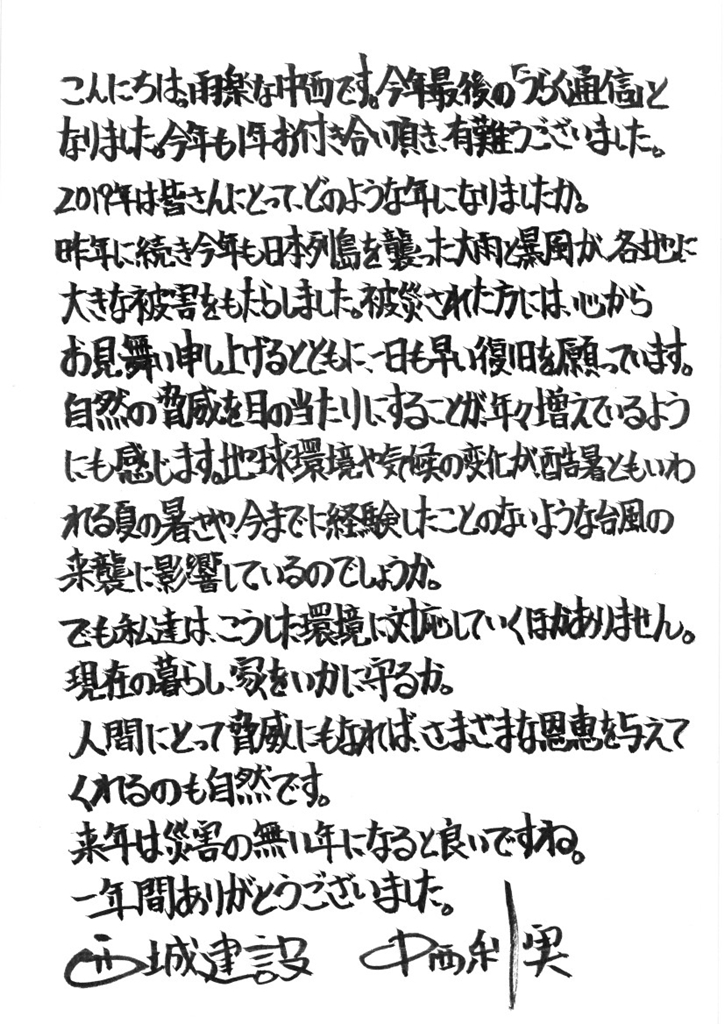 こんにちは。雨楽な中西です。今年最後の「うらく通信」と
なりました。今年も1年お付き合い頂き、有難うございました。
2019年は皆さんにとって、どのような年になりましたか。
昨年に続き今年も日本列島を襲った大雨と暴風が、各地に
大きな被害をもたらしました。被災された方には、心から
お見舞い申し上げるとともに、一日も早い復旧を願っています。
自然の脅威を目の当たりにすることが、年々増えているよう
にも感じます。地球環境や気候の変化が、酷暑ともいわ
れる夏の暑さや、今までに経験したことのないような台風の
来襲に影響しているのでしょうか。
でも私達は、こうした環境に対応していくほかありません。
現在の暮らし、家をいかに守るか。
人間にとって脅威にもなれば、さまざまな恩恵を与えて
くれるのも自然です。
来年は災害の無い年になると良いですね。
一年間ありがとうございました。
西城建設 中西利実